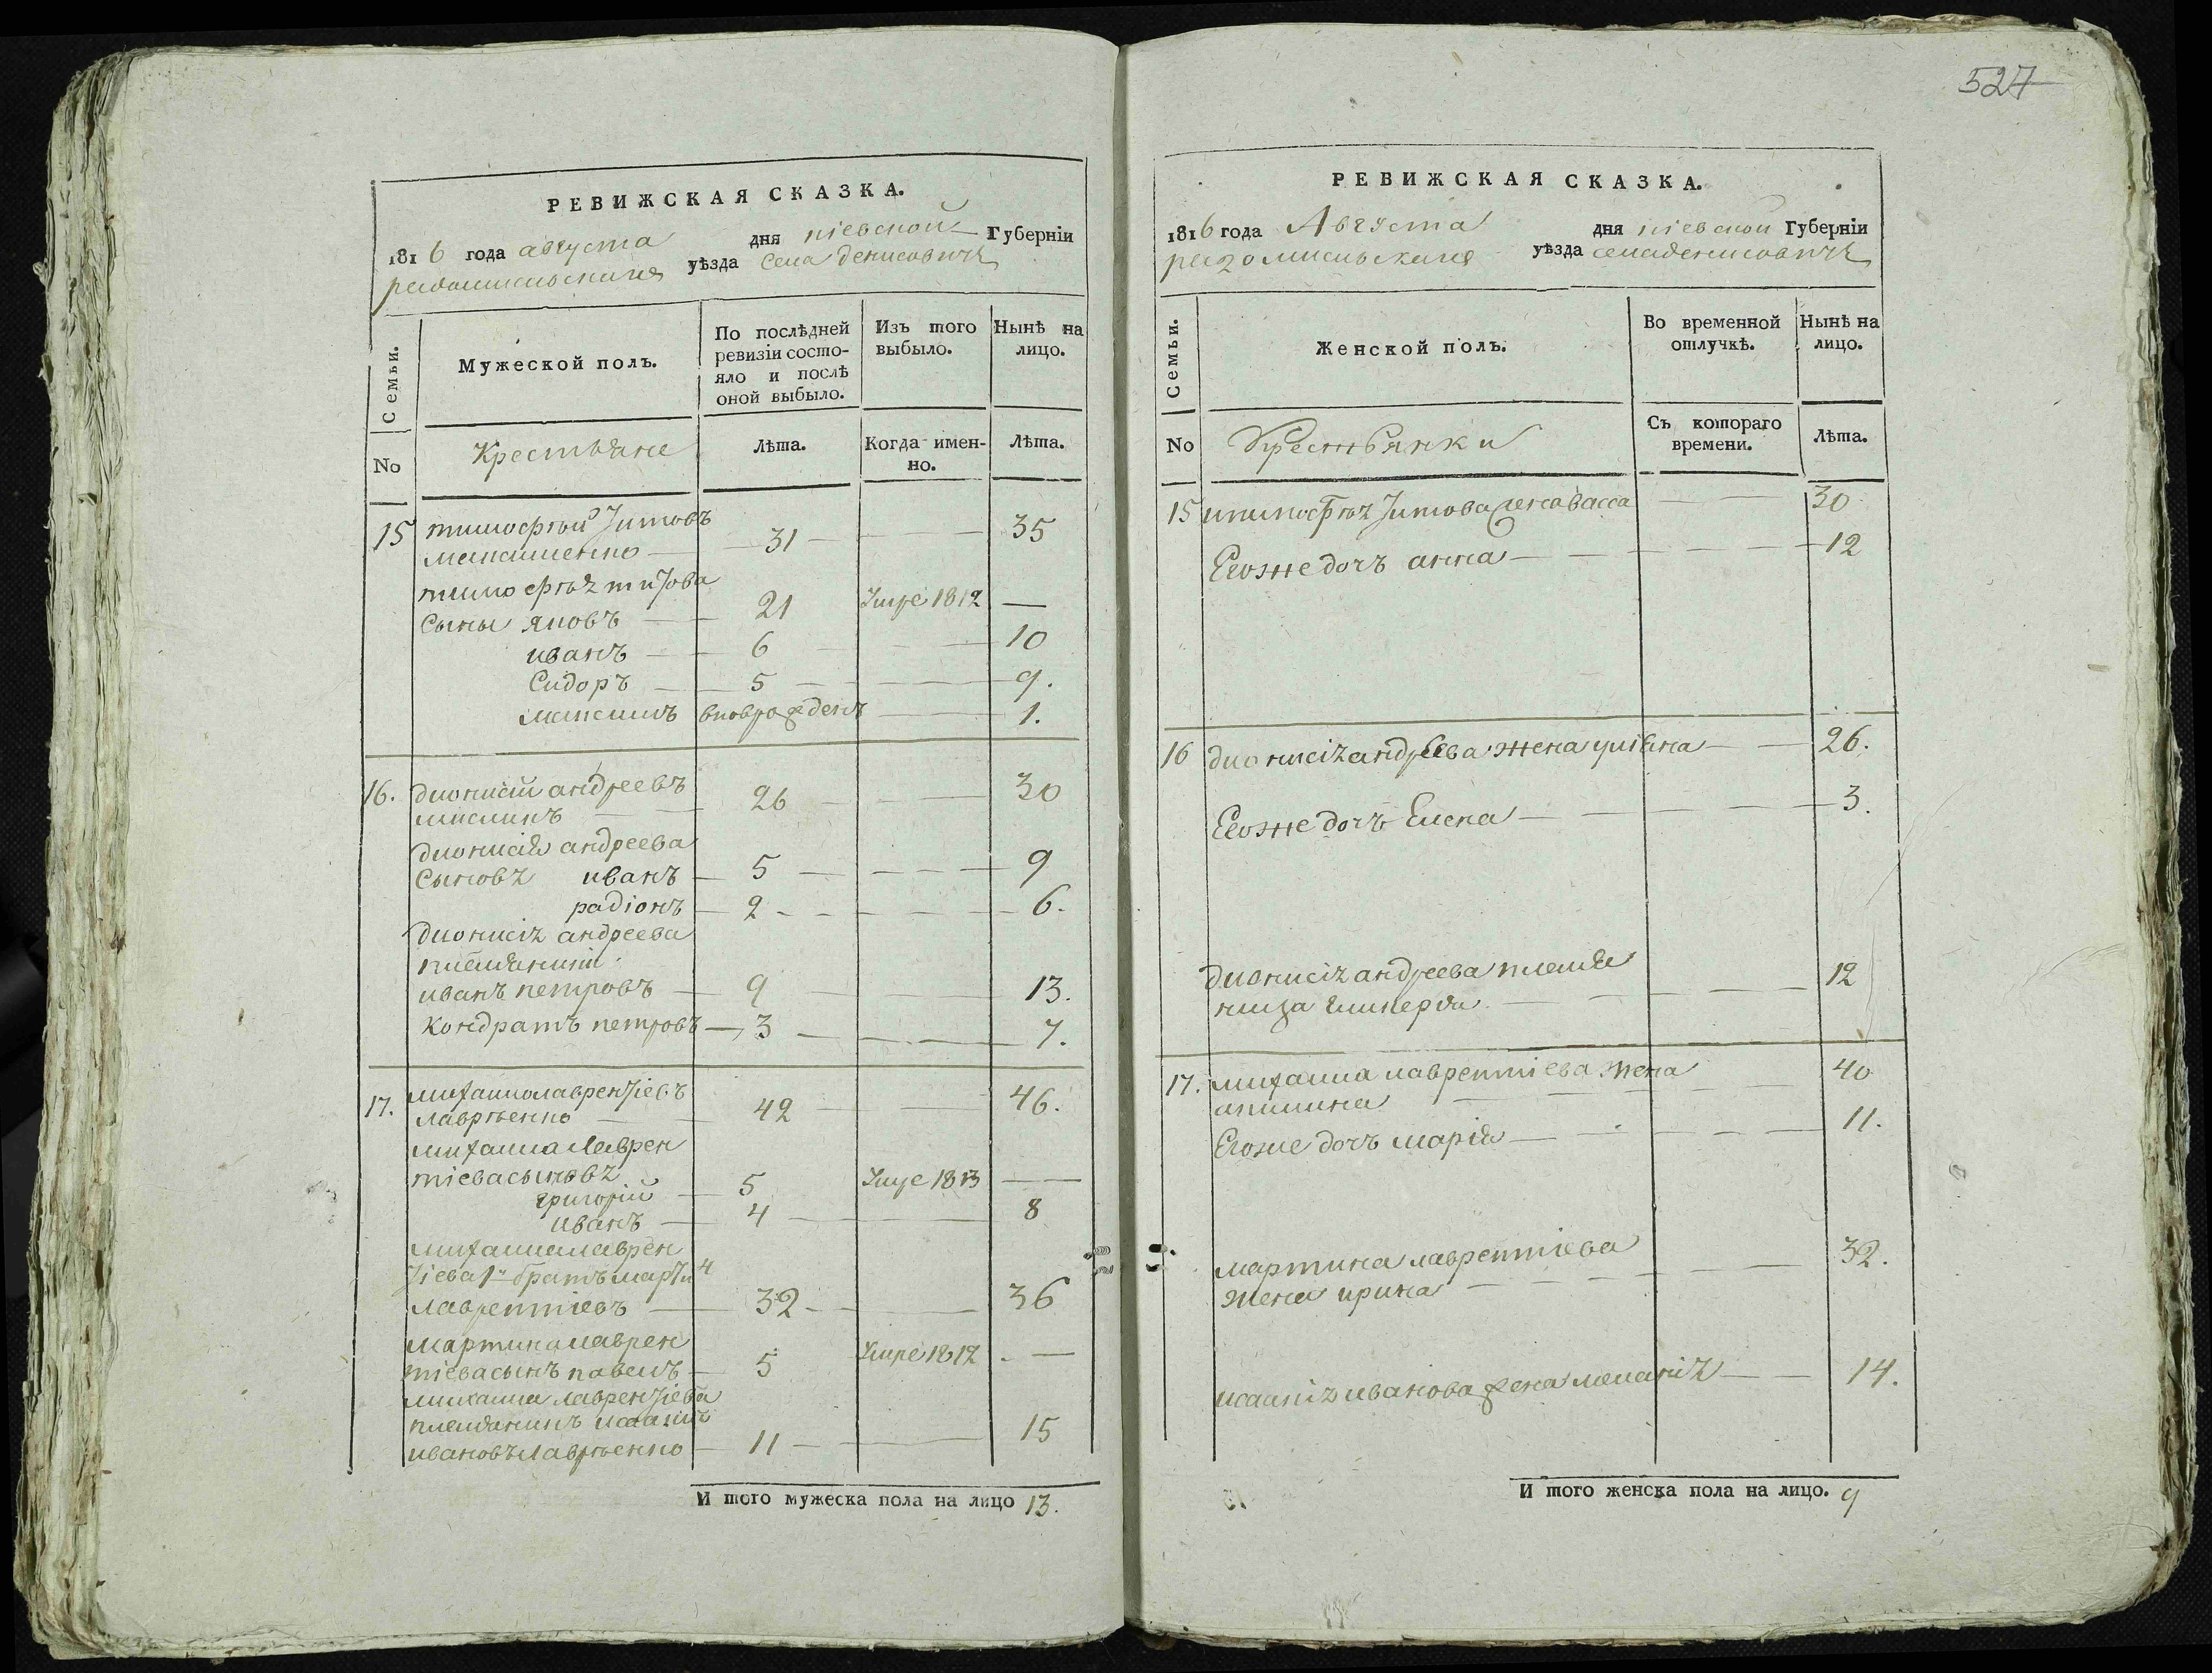 527
РЕВИЖСКАЯ СКАЗКА.
1816 года августа дня кіевской Губерніи
радомысльскаго уѣзда села денисовичъ
Семьи.
Мужеской полъ.
По послѣдней ревизіи состо-
яло и послѣ
оной выбыло.
Изъ того
выбыло.
Нынѣ на
лицо.
No
Крестьяне
Лѣта.
Когда имен-
но.
Лѣта.
15 тимофѣй Титовъ
максименко 31 35
тимофѣя титова
Сыны яковъ 21 Умре 1812
иванъ 6 10
Сидоръ 5 9.
максимъ вноврожденъ 1.
16. дионисій андреевъ 26 30
дионисія андреева
Сыновя иванъ 5 9
радіонъ 2 6.
дионисія андреева
племяники
иванъ петровъ 9 13.
Кондратъ петровъ 3 7.
17. михаилолаврентіевъ
лаврѣенко 42 46.
михаила Лаврен
тіева сыновя
григорій 5 Умре 1813
иванъ 4 8
михаила лаврен
тіева 1й братъ мартин
лаврентіевъ 32 36
мартина лаврен
тіева сынъ павелъ 5 Умре 1812
михаила лаврентіева
племянникъ исаакій
ивановъ лаврѣенко 11 15
И того мужеска пола на лицо 13.
РЕВИЖСКАЯ СКАЗКА.
1816 года Августа дня кіевской Губерніи
радомысльскаго уѣзда села денисовичъ
Семьи.
Женской полъ.
Во временной
отлучкѣ.
Нынѣ на
лицо.
No
Крестьянки
Съ котораго
времени.
Лѣта.
15 тимофѣя Титова жена васса 30
Егоже дочъ анна 12
16 дионисія андреева жена уліяна 26.
Егоже дочъ Елена 3.
дионисія андреева племя
ница гликерія 12
17. михаила лаврентіева жена
акилина 40
Егоже дочъ марія 11.
мартина лаврентіева
жена ирина 32.
исаакія иванова жена меланія 14.
И того женска пола на лицо. 9